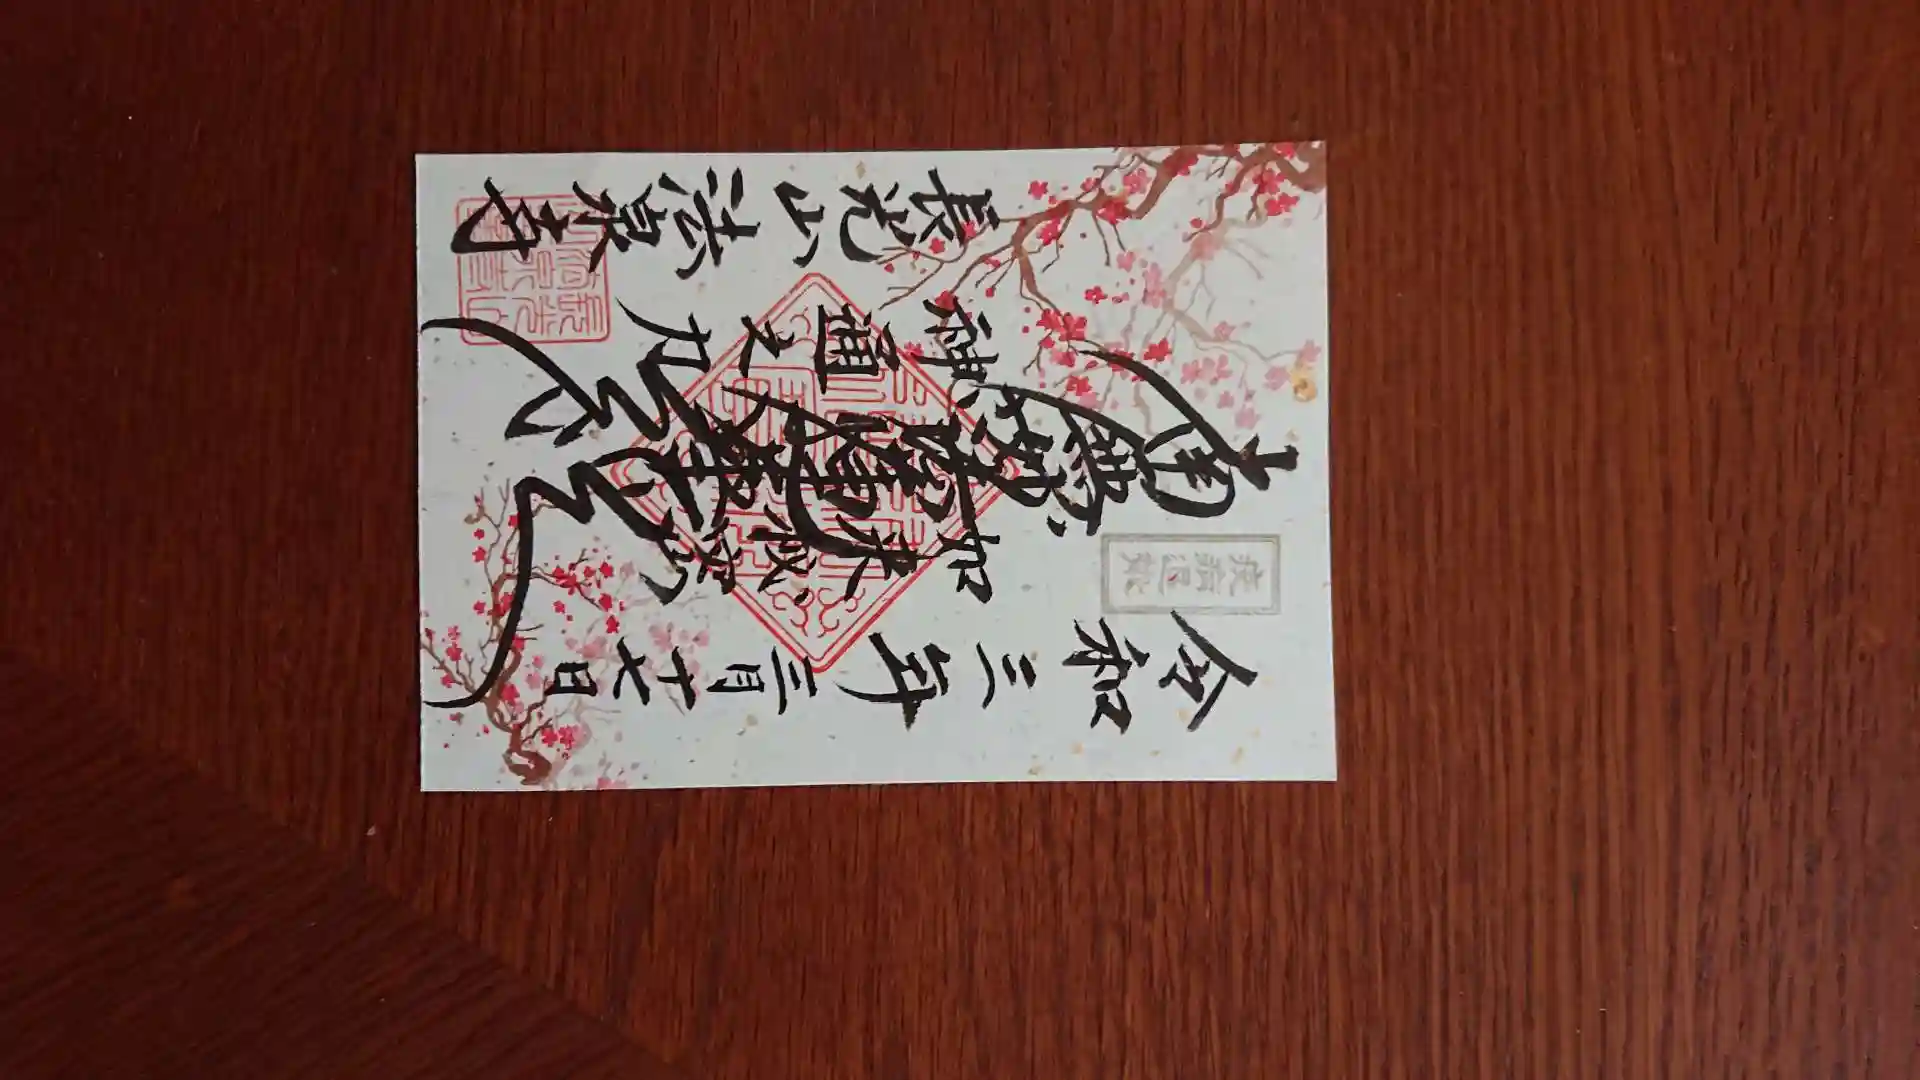 疫病退散
令和三年三月十七日
如来秘密
南無妙法蓮華経
神通之力
長光山法泉寺